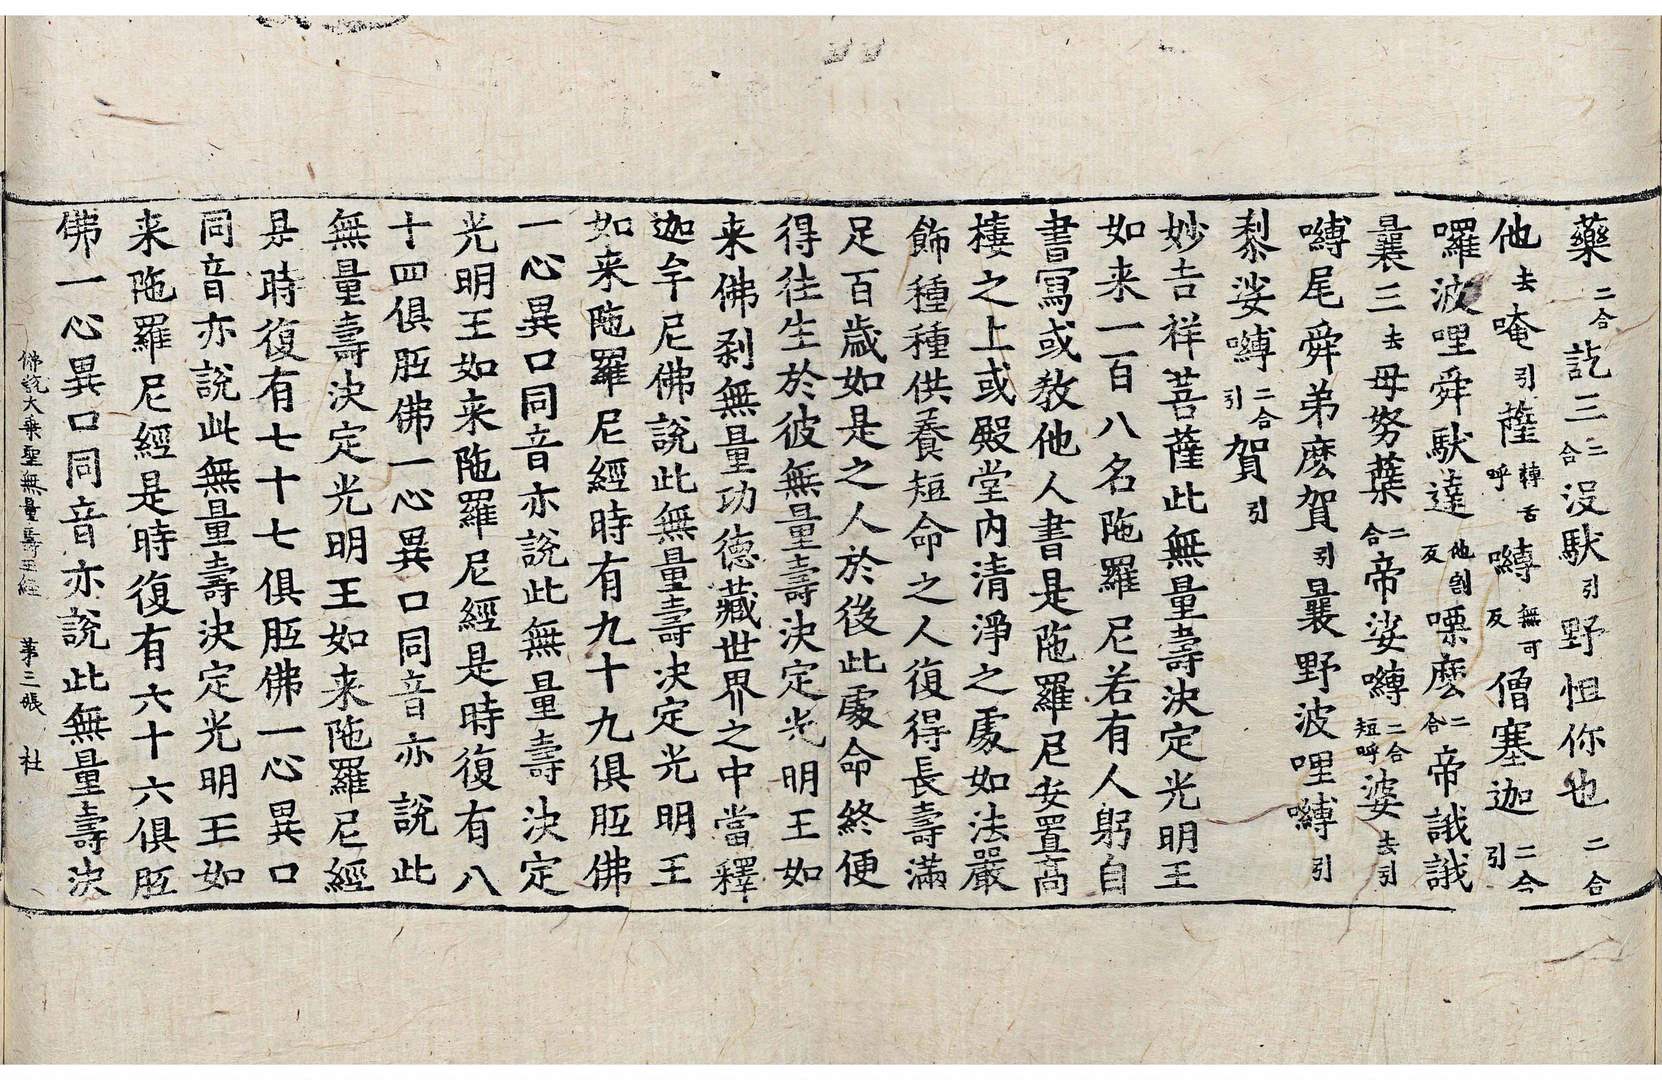 藥二合訖三二合沒馱引野怛你也二合
他去唵引薩轉舌呼嚩無可反僧塞迦二合引
囉波哩舜馱達他割反㗚麽二合帝誐誐
曩三去母努蘖二合帝娑嚩二合短呼婆去引
嚩尾舜弟麽賀引曩野波哩嚩引
黎娑嚩二合引賀引
妙吉祥菩薩此無量壽決定光明王
如来一百八名陁羅尼若有人躬自
書寫或教他人書是陁羅尼安置高
樓之上或殿堂內清淨之處如法嚴
飾種種供養短命之人復得長壽滿
足百歲如是之人於後此處命終便
得往生於彼無量壽決定光明王如
来佛刹無量功德藏世界之中當釋
迦牟尼佛說此無量壽決定光明王
如来陁羅尼經時有九十九俱胝佛
一心異口同音亦說此無量壽決定
光明王如来陁羅尼經是時復有八
十四俱胝佛一心異口同音亦說此
無量壽決定光明王如来陁羅尼經
是時復有七十七俱胝佛一心異口
同音亦說此無量壽決定光明王如
来陁羅尼經是時復有六十六俱胝
佛一心異口同音亦說此無量壽決
佛說大乗聖無量壽王經 苐三張 社